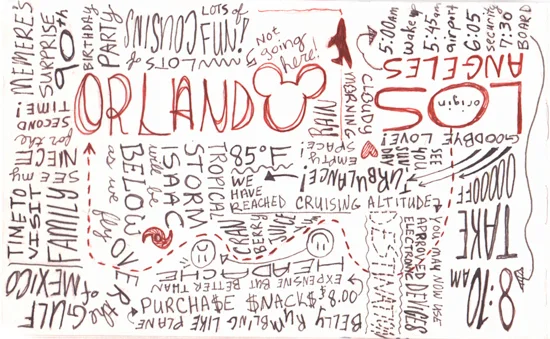 5:00am
wake up
5:45am
airport
6:05
security
7:30
BOARD
LOS
origin
ANGELES
GOODBYE LOVE!
SEE
YOU
SUNDAY
TAKE
OOOOOFF
8:10 AM
YOU MAY NOW USE
APPROVED
ELECTRONIC DEVICES
WE HAVE
REACHED CRUISING ALTITUDE
TURBULENCE!
DESTINATION
CRAN
BERRY
JUICE
HEADACHE
EXPENSIVE BUT BETTER THAN
PURCHA$E $NACK$: $8.00
BELLY RUMBLING LIKE PLANE
TROPICAL
STORM
ISAAC
will be
BELOW
as we fly
OVER
the
GULF
of MEXICO
85°F
CLOUDY
MEANING
empty
SPACE!
RAIN
Not
going
here!
ORLANDO
LOTS of
FUN!
LOTS of
COUSINS
MEMERE'S
SURPRISE
90th
BIRTHDAY
PARTY
TIME TO
VISIT
FAMILY
SEE my
NIECE
for the
SECOND
TIME!